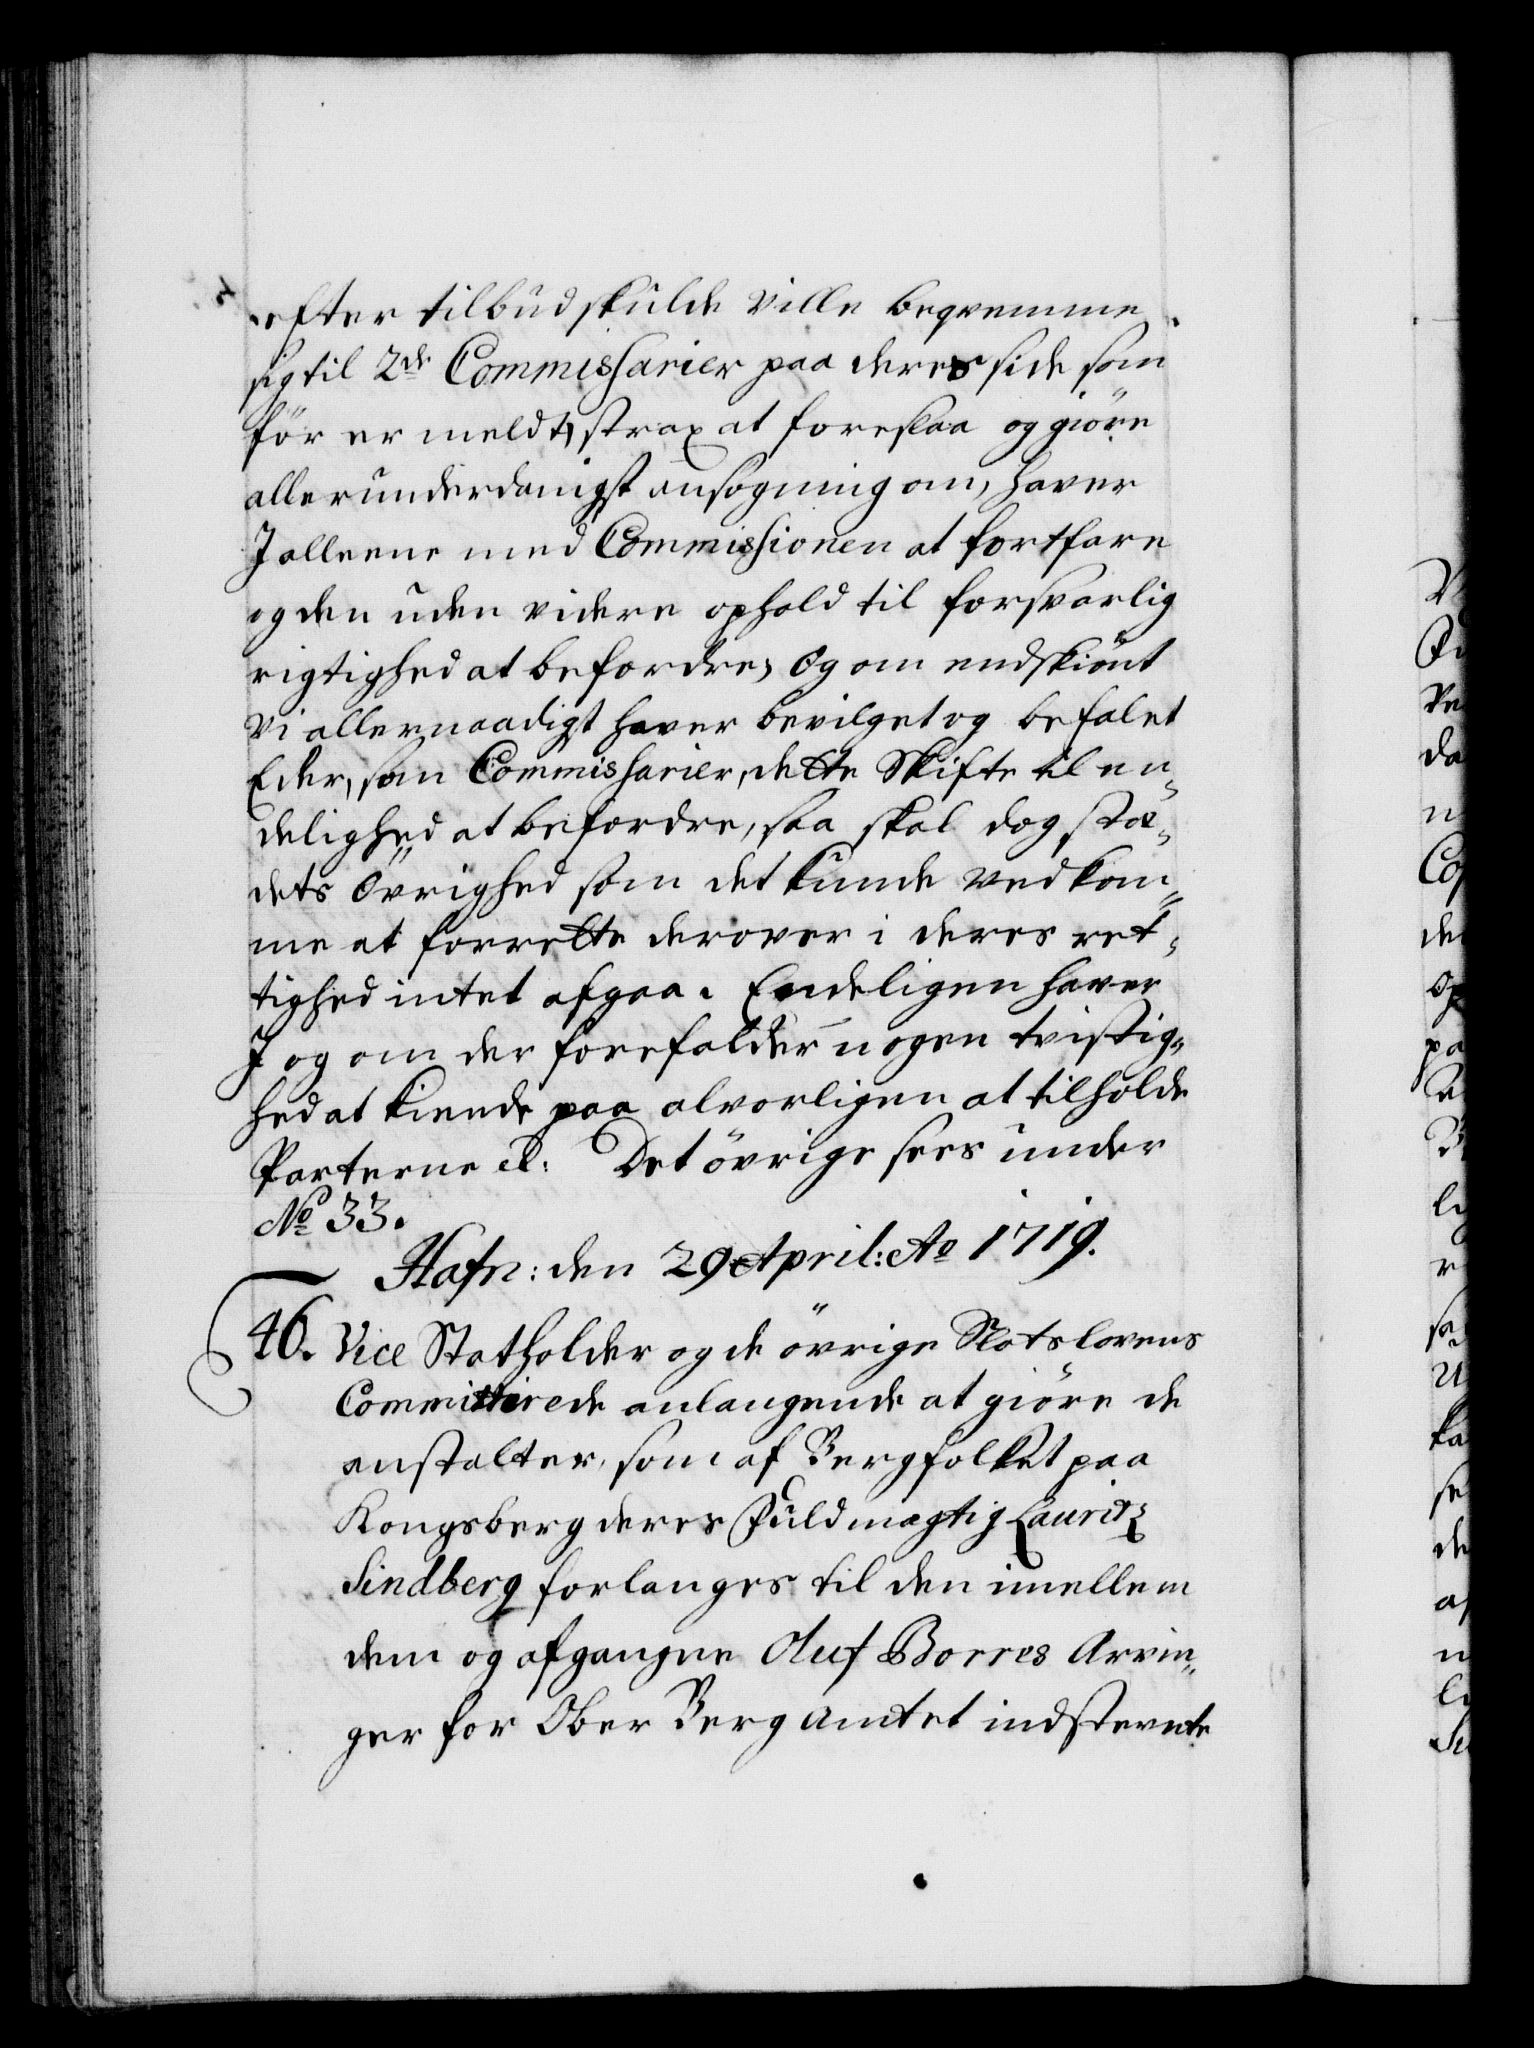 efter tilbud skulde ville beqvemme
sig til 2de Commissarier paa deres side som
för er meldt, strax at foreslaa og giöre
allerunderdanigst ansögning om, haver
I alleene med Commissionen at fortfare
og den uden videre ophold til forsvarlig
rigtighed at befordre, og om endskiönt
Vi allernaadigst haver bevilget og befalet
Eder, som Commissarier, dette Skifte til en„
delighed at befordre, saa skal dog stæ„
dets Övrighed som det kunde vedkom„
me at forrette derover i deres ret„
tighed intet afgaa. Endeligen haver
I og om der forefalder nogen tvistig„
hed at kiende paa alvorligen at tilholde
Parterne &: Det övrige sees under
No 33.
Hafn: den 29 April: Ao 1719.
46. Vice Statholder og de övrige Slotslovens
Committerede anlangende at giöre de
anstalter, som af Bergfolket paa
Kongsberg deres Fuldmægtig Lauritz
Sindberg forlanges til den imellem
dem og afgangne Oluf Borres Arvin„
ger for Ober Berg Amtet indstevnte